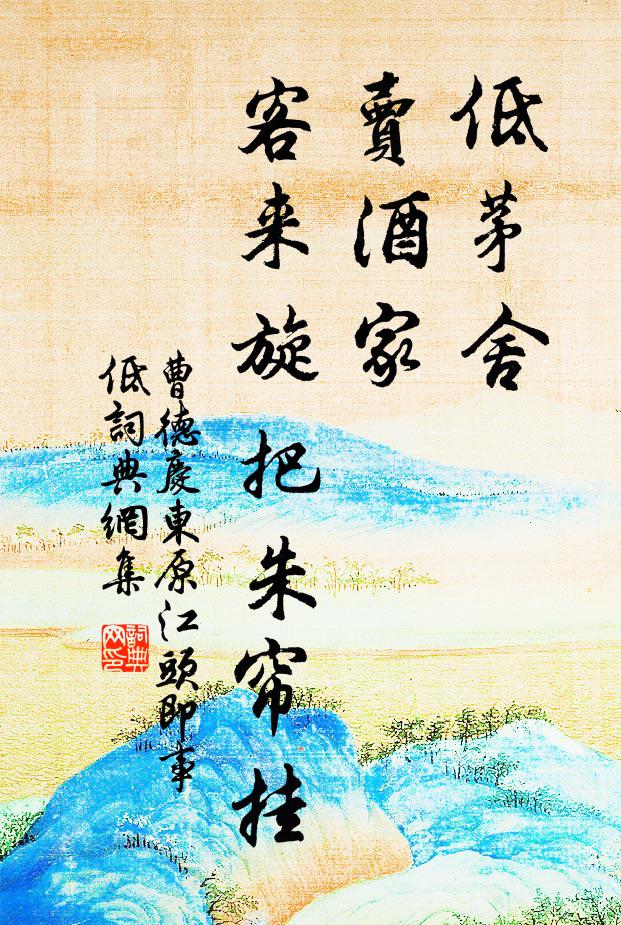 低茅舍
賣酒家
客来旋把朱帘挂
曹德慶東原江頭即事
低詞典網集
詞典网印